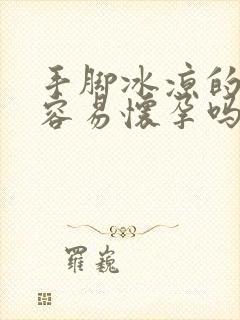 手脚冰凉的
容易怀孕吗
羅巍